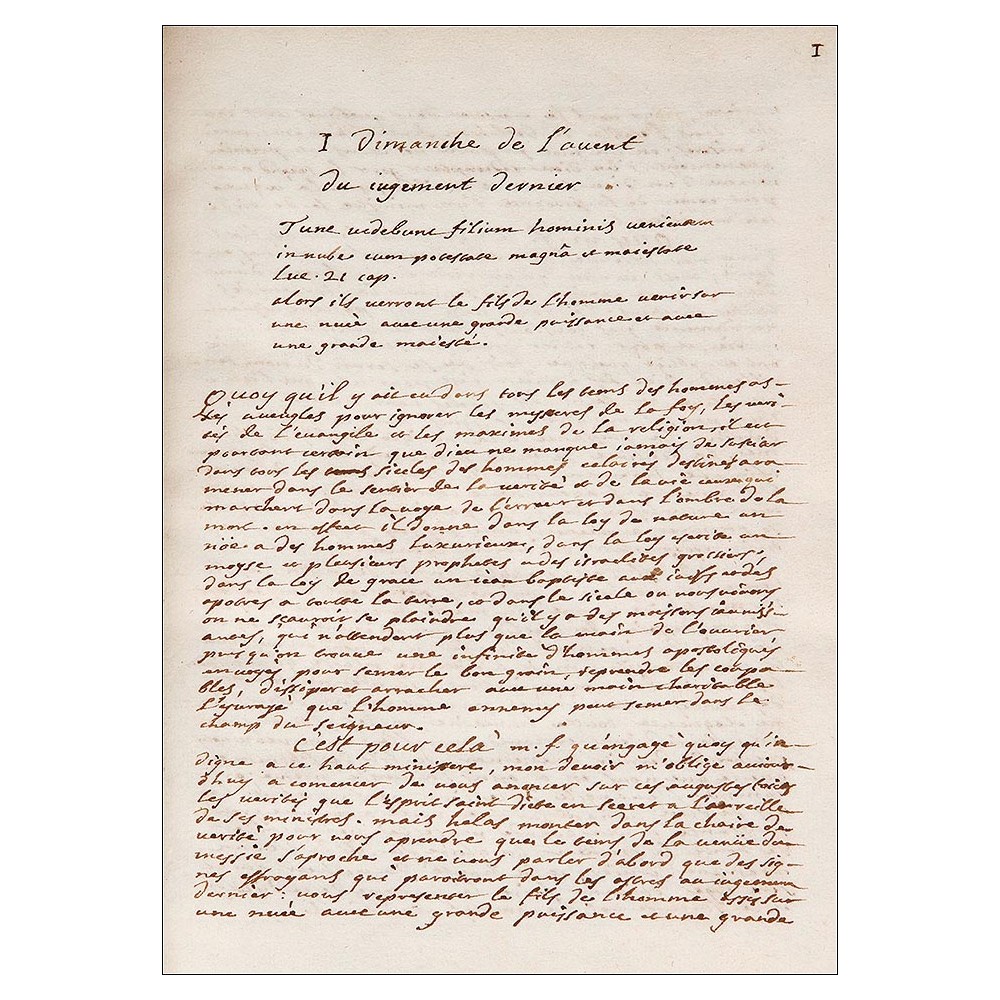 1
1 Dimanche de l'auent
Du iugement dernier
Tunc uidebunt filium hominis uenientem
in nube cum potestate magnâ et maiestate
Luc. 21 cap.
alors ils uerront le fils de l'homme uenir sur
une nuée auec une grande puissance et auec
une grande maiesté.
Quoy qu'il y ait eu dans tous les tems des hommes as-
sés aueugles pour ignorer les mysteres de la foy, les ueri-
tés de l'euangile et les maximes de la religion, il est
pourtant certain que dieu ne manque iamais de susciter
dans tous les siecles des hommes eclairés destinés a ra-
mener dans le sentier de la uerité et de la uie ceux qui
marchent dans la uoye de l'erreur et dans l'ombre de la
mort. en effect il donne dans la loy de nature un
nöe a des hommes luxurieux, dans la loy escrite un
moyse et plusieurs prophetes a des israelites grossiers,
dans la loy de grace un iean baptiste aux iuifs et des
apotres a toutte la terre, et dans le siecle ou nous uiuons
on ne scauroit se plaindre qu'il y a des moissons iaunis-
antes, qui n'attendent plus que la main de l'ouurier
puis qu'on trouue une infinité d'hommes apostoliques
enuoyés pour semer le bon grain, reprendre les coupa-
bles, dissiper et arracher auec une main charitable
l'yuraye que l'homme ennemy peut semer dans le
champ du seigneur.
C'est pour cela m. f. qu'engagé quoy qu'in-
digne a ce haut ministere, mon deuoir m'oblige auiour-
d'huy a comencer de uous anoncer sur ces augustes
les uerités que l'esprit saint dicte en secret a l'oreille
de ses ministres. mais helas monter dans la chaire de
uerité pour uous aprendre que le tems de la uenüe du
messie s'aproche et ne uous parler d'abord que des sig-
nes effroyans qui paroitront dans les astres au iugement
dernier: uous representer le fils de l'homme assis sur
une nuée auec une grande puissance et une grande